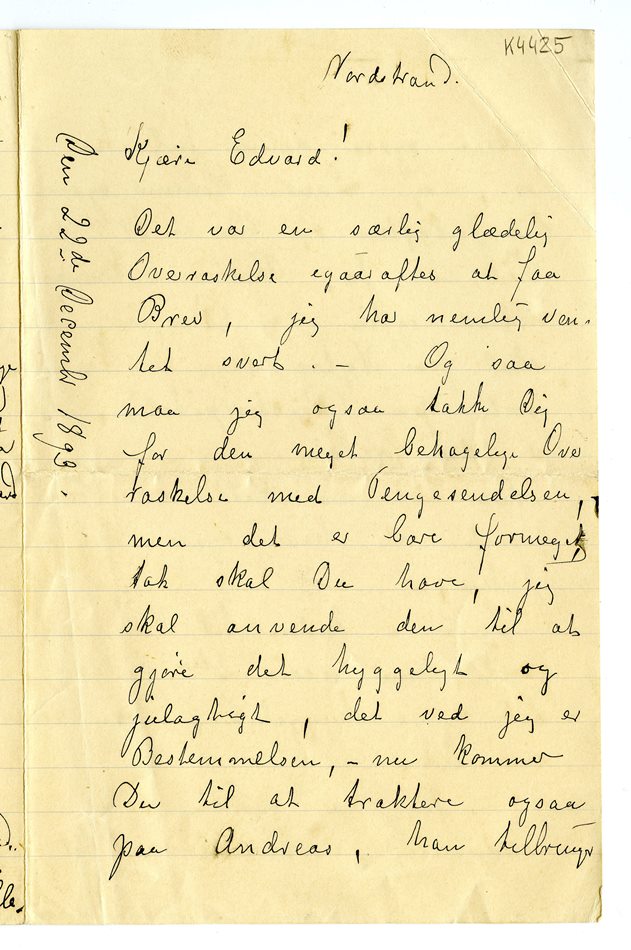 K4425
Nordstrand.
Den 22de December 1893.
Kjære Edvard!
Det var en særlig glædelig
Overraskelse igaaraftes at faa
Brev, jeg har nemlig ven-
tet svært. – Og saa
maa jeg ogsaa takke Dig
for den meget behagelige Over
raskelse med Pengesendelsen,
men det er bare formeget,
tak skal Du have, jeg
skal anvende den til at
gjøre det hyggeligt og
julagtigt, det ved jeg er
Bestemmelsen, – nu kommer
Du til at traktere ogsaa
paa Andreas, han tilbringer